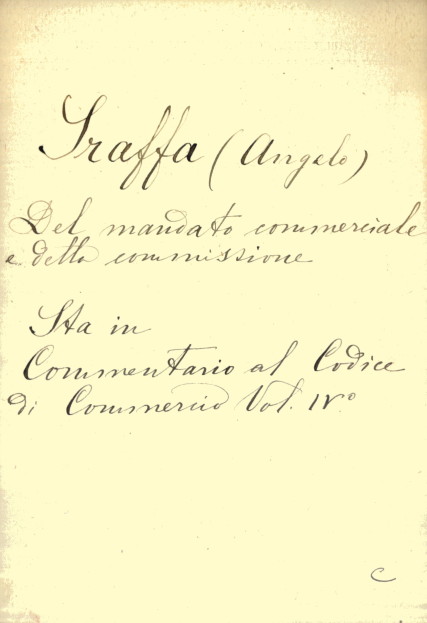 Sraffa (Angelo)
Del mandato commerciale
e della commissione
Sta in
Commentario al Codice
di Commercio Vol. IVº
C